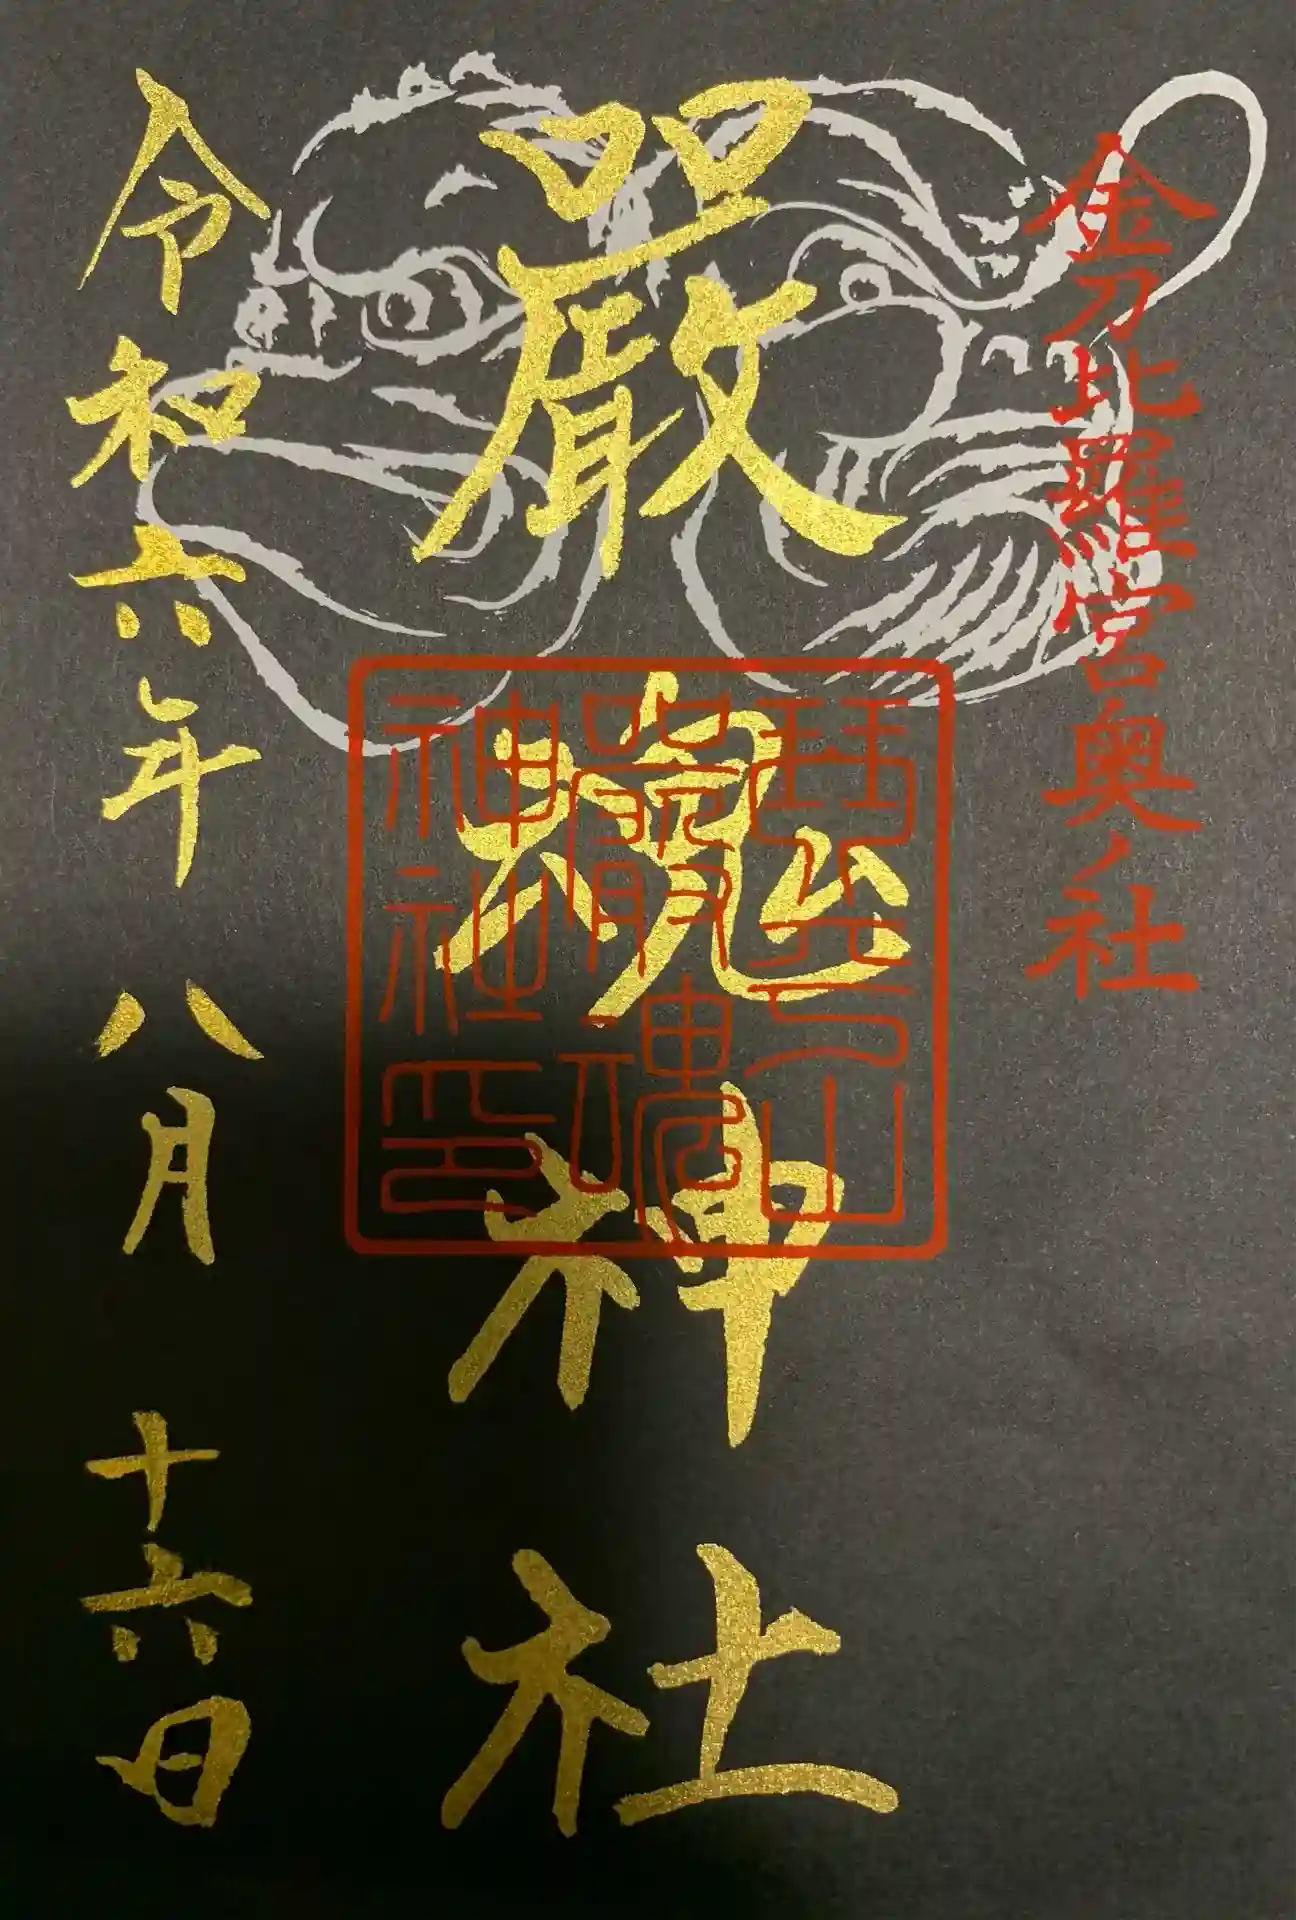 金刀比羅宮奥ノ社
嚴魂神社
琴平山
嚴魂
神社印
令和六年八月十六日